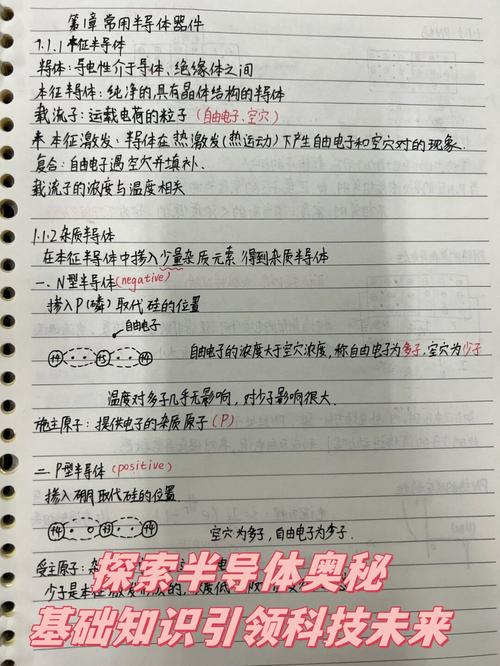 第1章 常用半导体器件
1.1.1 本征半导体
半导体：导电性介于导体、绝缘体之间
本征半导体：纯净的具有晶体结构的半导体
载流子：运载电荷的粒子（自由电子、空穴）
* 本征激发：半导体在热激发（热运动）下产生自由电子和空穴对的现象.
复合：自由电子遇空穴并填补.
载流子的浓度与温度相关
1.1.2 杂质半导体
在本征半导体中掺入少量杂质元素 得到杂质半导体
一、N型半导体(negative)
掺入P（磷）取代硅的位置
自由电子
+4 +5 +4
自由电子的浓度大于空穴浓度，称自由电子为多子，空穴为少子
温度对多子几乎无影响，对少子影响很大.
施主原子：提供电子的杂质原子（P）
二、P型半导体（positive）
掺入硼取代硅的位置
空穴为多子，自由电子为少子.
受主原子：
少子是本征激发形成的，
探索半导体奥秘
基础知识引领科技未来